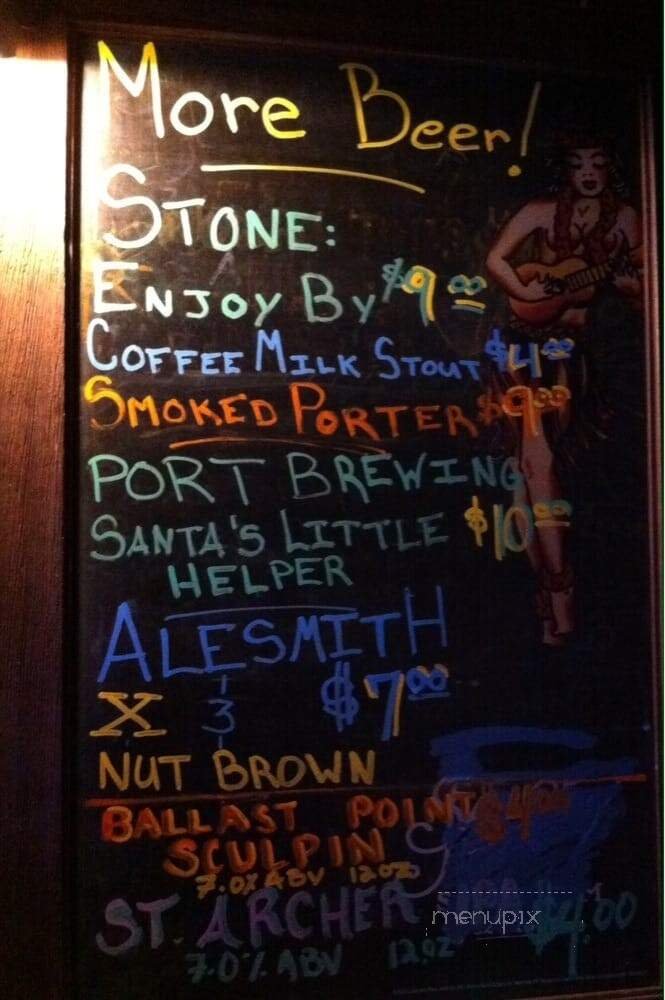 More Beer!
STONE:
ENJOY BY $9.00
COFFEE MILK STOUT $4.00
SMOKED PORTER $9.00
PORT BREWING
SANTA'S LITTLE $10.00
HELPER
ALESMITH
X & $7.00
NUT BROWN
BALLAST POINT $4.00
SCULPIN
7.0% ABV 12oz
ST. ARCHER $4.00
menupix
7.0% ABV 12oz